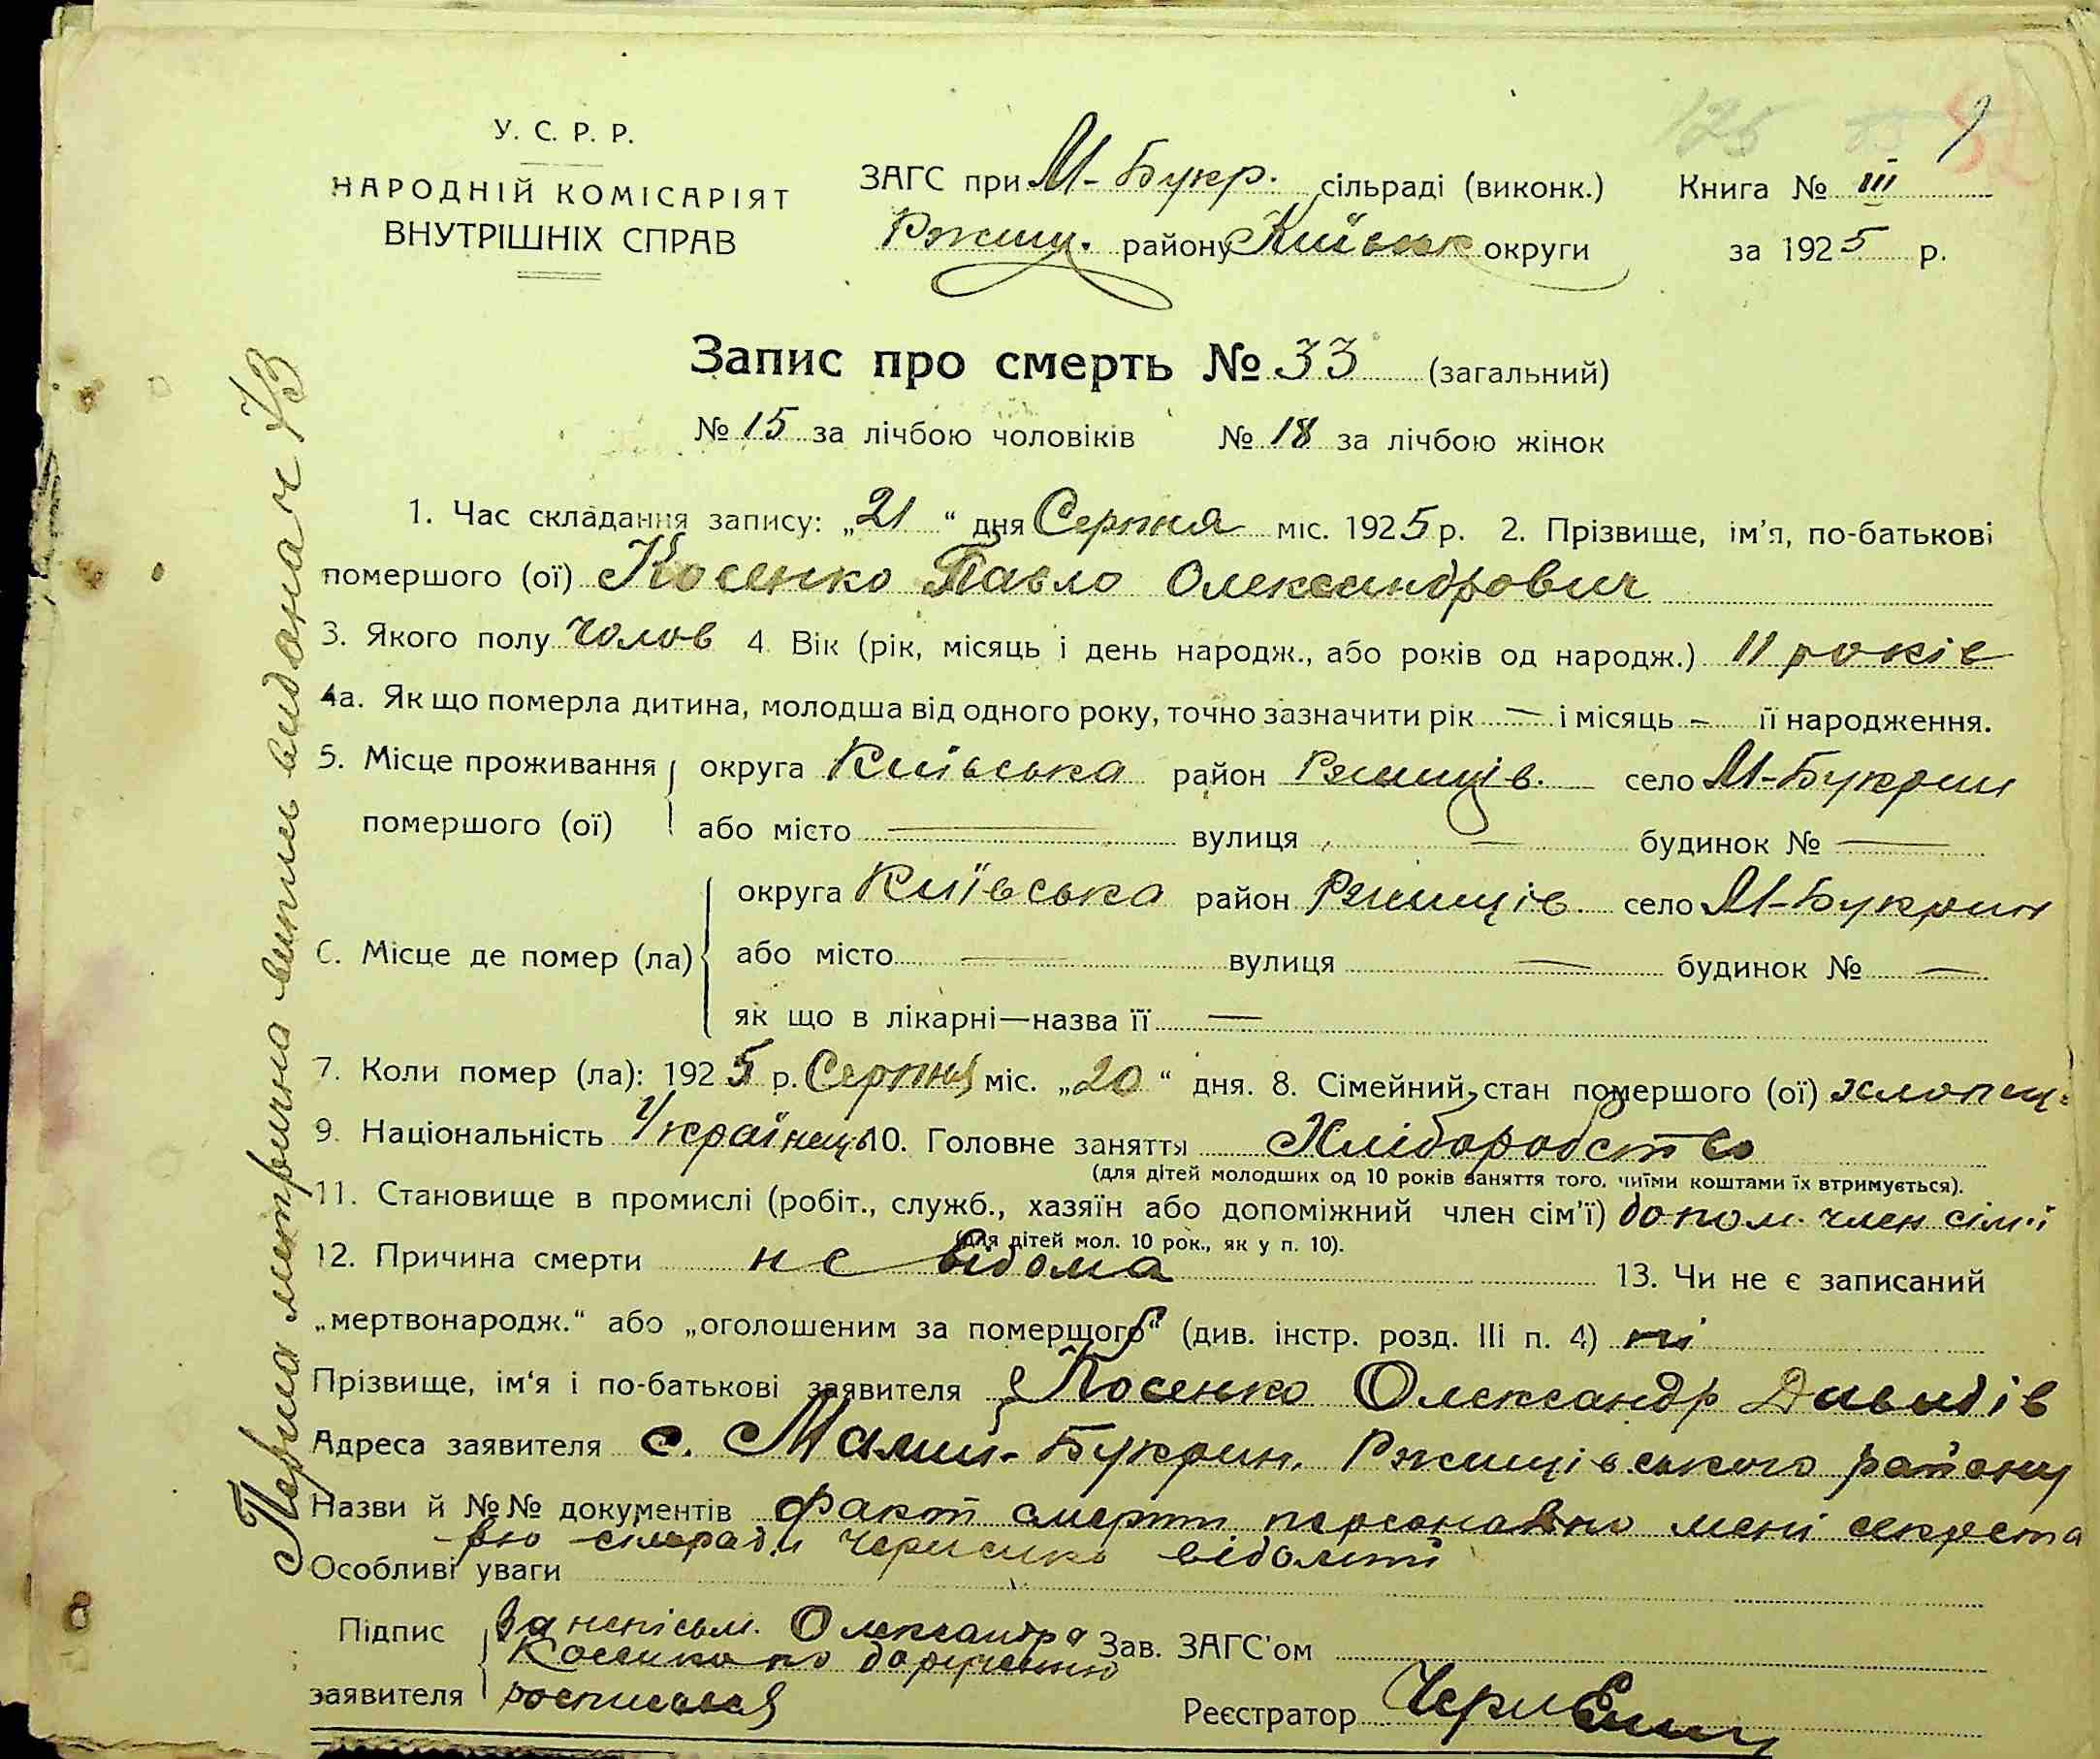 У. С. Р. Р.
НАРОДНІЙ КОМІСАРІЯТ
ВНУТРІШНІХ СПРАВ
ЗАГС при М-Букр. сільраді (виконк.)
Ржищ. району Київськ округи
125
Книга № III
за 1925 р.
Запис про смерть № 33 (загальний)
№ 15 за лічбою чоловіків № 18 за лічбою жінок
1. Час складання запису: „21“ дня Серпня міс. 1925 р. 2. Прізвище, ім'я, по-батькові
помершого (ої) Косенко Павло Олександрович
3. Якого полу чолов 4. Вік (рік, місяць і день народж., або років од народж.) 11 років
4а. Як що померла дитина, молодша від одного року, точно зазначити рік — і місяць — її народження.
5. Місце проживання округа Київська район Ржищів. село М-Букрин
помершого (ої) або місто — вулиця — будинок № —
округа Київська район Ржищів. село М-Букрин
6. Місце де помер (ла) або місто — вулиця — будинок № —
як що в лікарні—назва її —
7. Коли помер (ла): 1925 р. Серпня міс. „20“ дня. 8. Сімейний стан помершого (ої) хлопец.
9. Національність Українець 10. Головне заняття Хліборобство
(для дітей молодших од 10 років заняття того, чиїми коштами їх втримується).
11. Становище в промислі (робіт., служб., хазяїн або допоміжний член сім'ї) допом. член сім'ї
(для дітей мол. 10 рок., як у п. 10).
12. Причина смерти не відома 13. Чи не є записаний
„мертвонародж.“ або „оголошеним за помершого“ (див. інстр. розд. III п. 4) ні
Прізвище, ім'я і по-батькові заявителя Косенко Олександр Давидів
Адреса заявителя с. Малий-Букрин, Ржищівського району
Назви й №№ документів Факт смерти персонально мені секрета
рю сільради відомий
Особливі уваги
Підпис За неписьм. Олександра
Косенка по дорученню
заявителя росписався
Зав. ЗАГС'ом
Реєстратор
Перша метрична випись видана ч